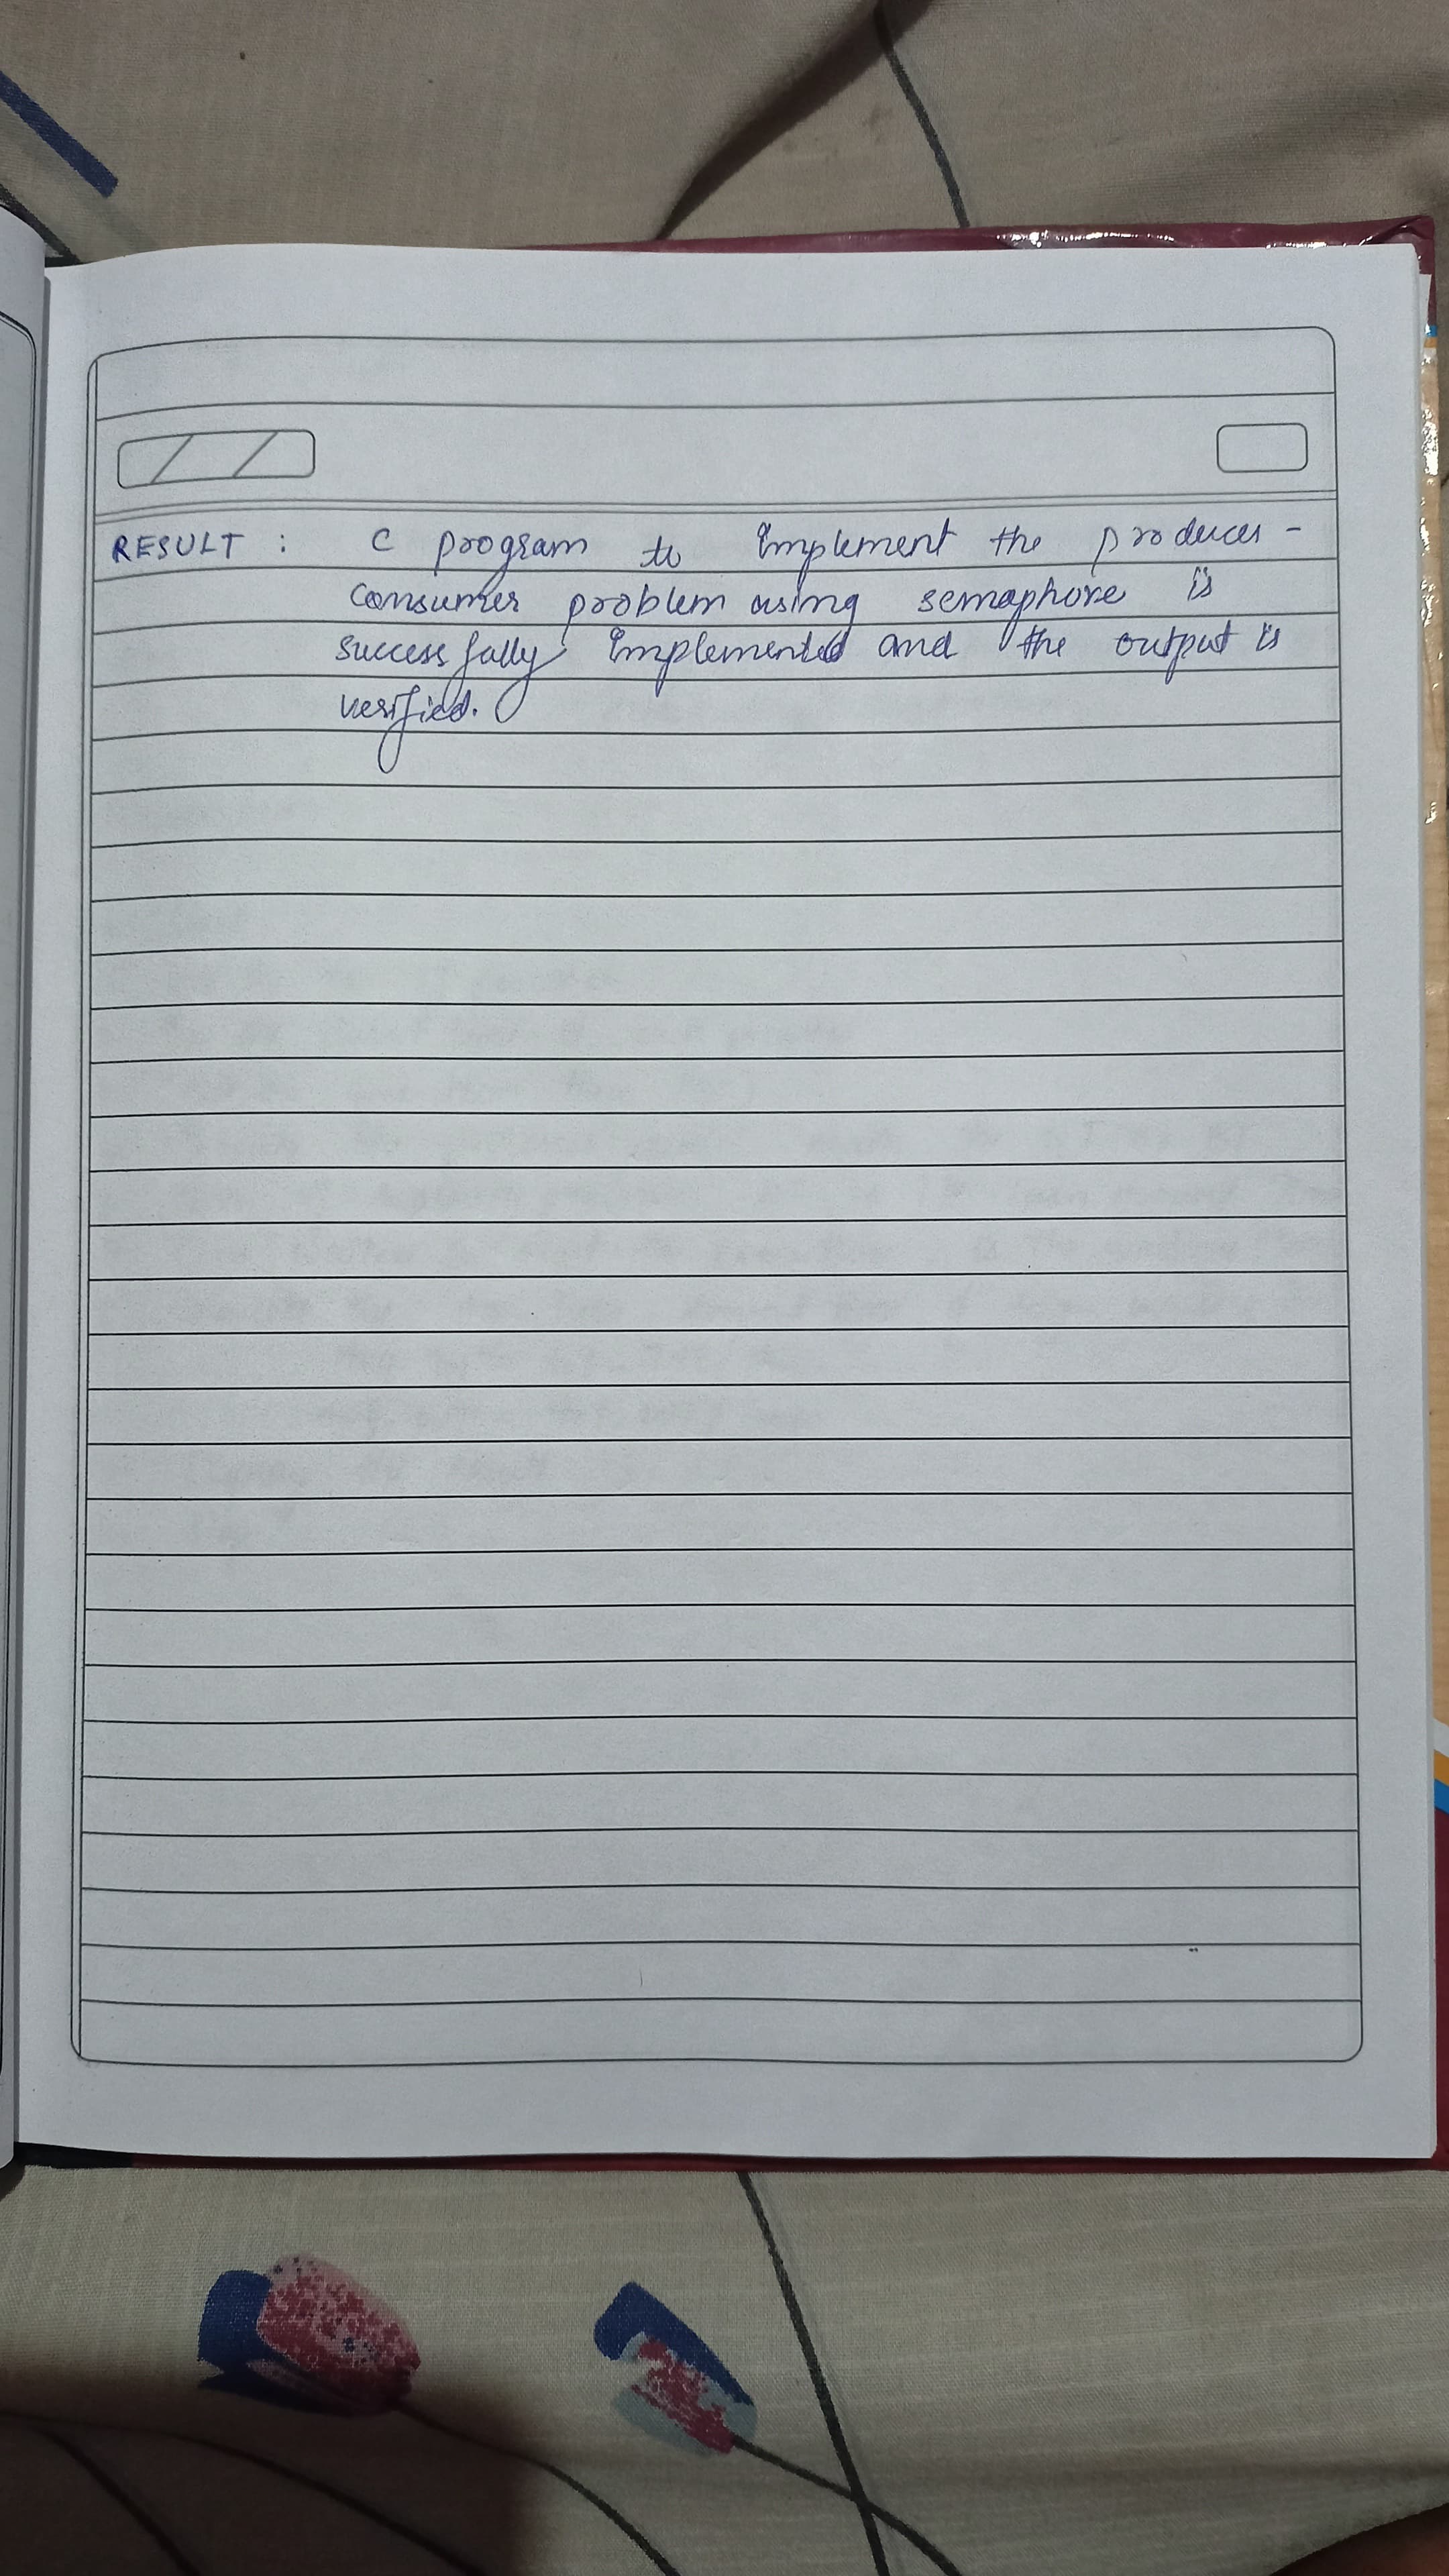 RESULT : C program to Implement the producer -
consumer problem using semaphore is
successfully Implemented and the output is
verified.